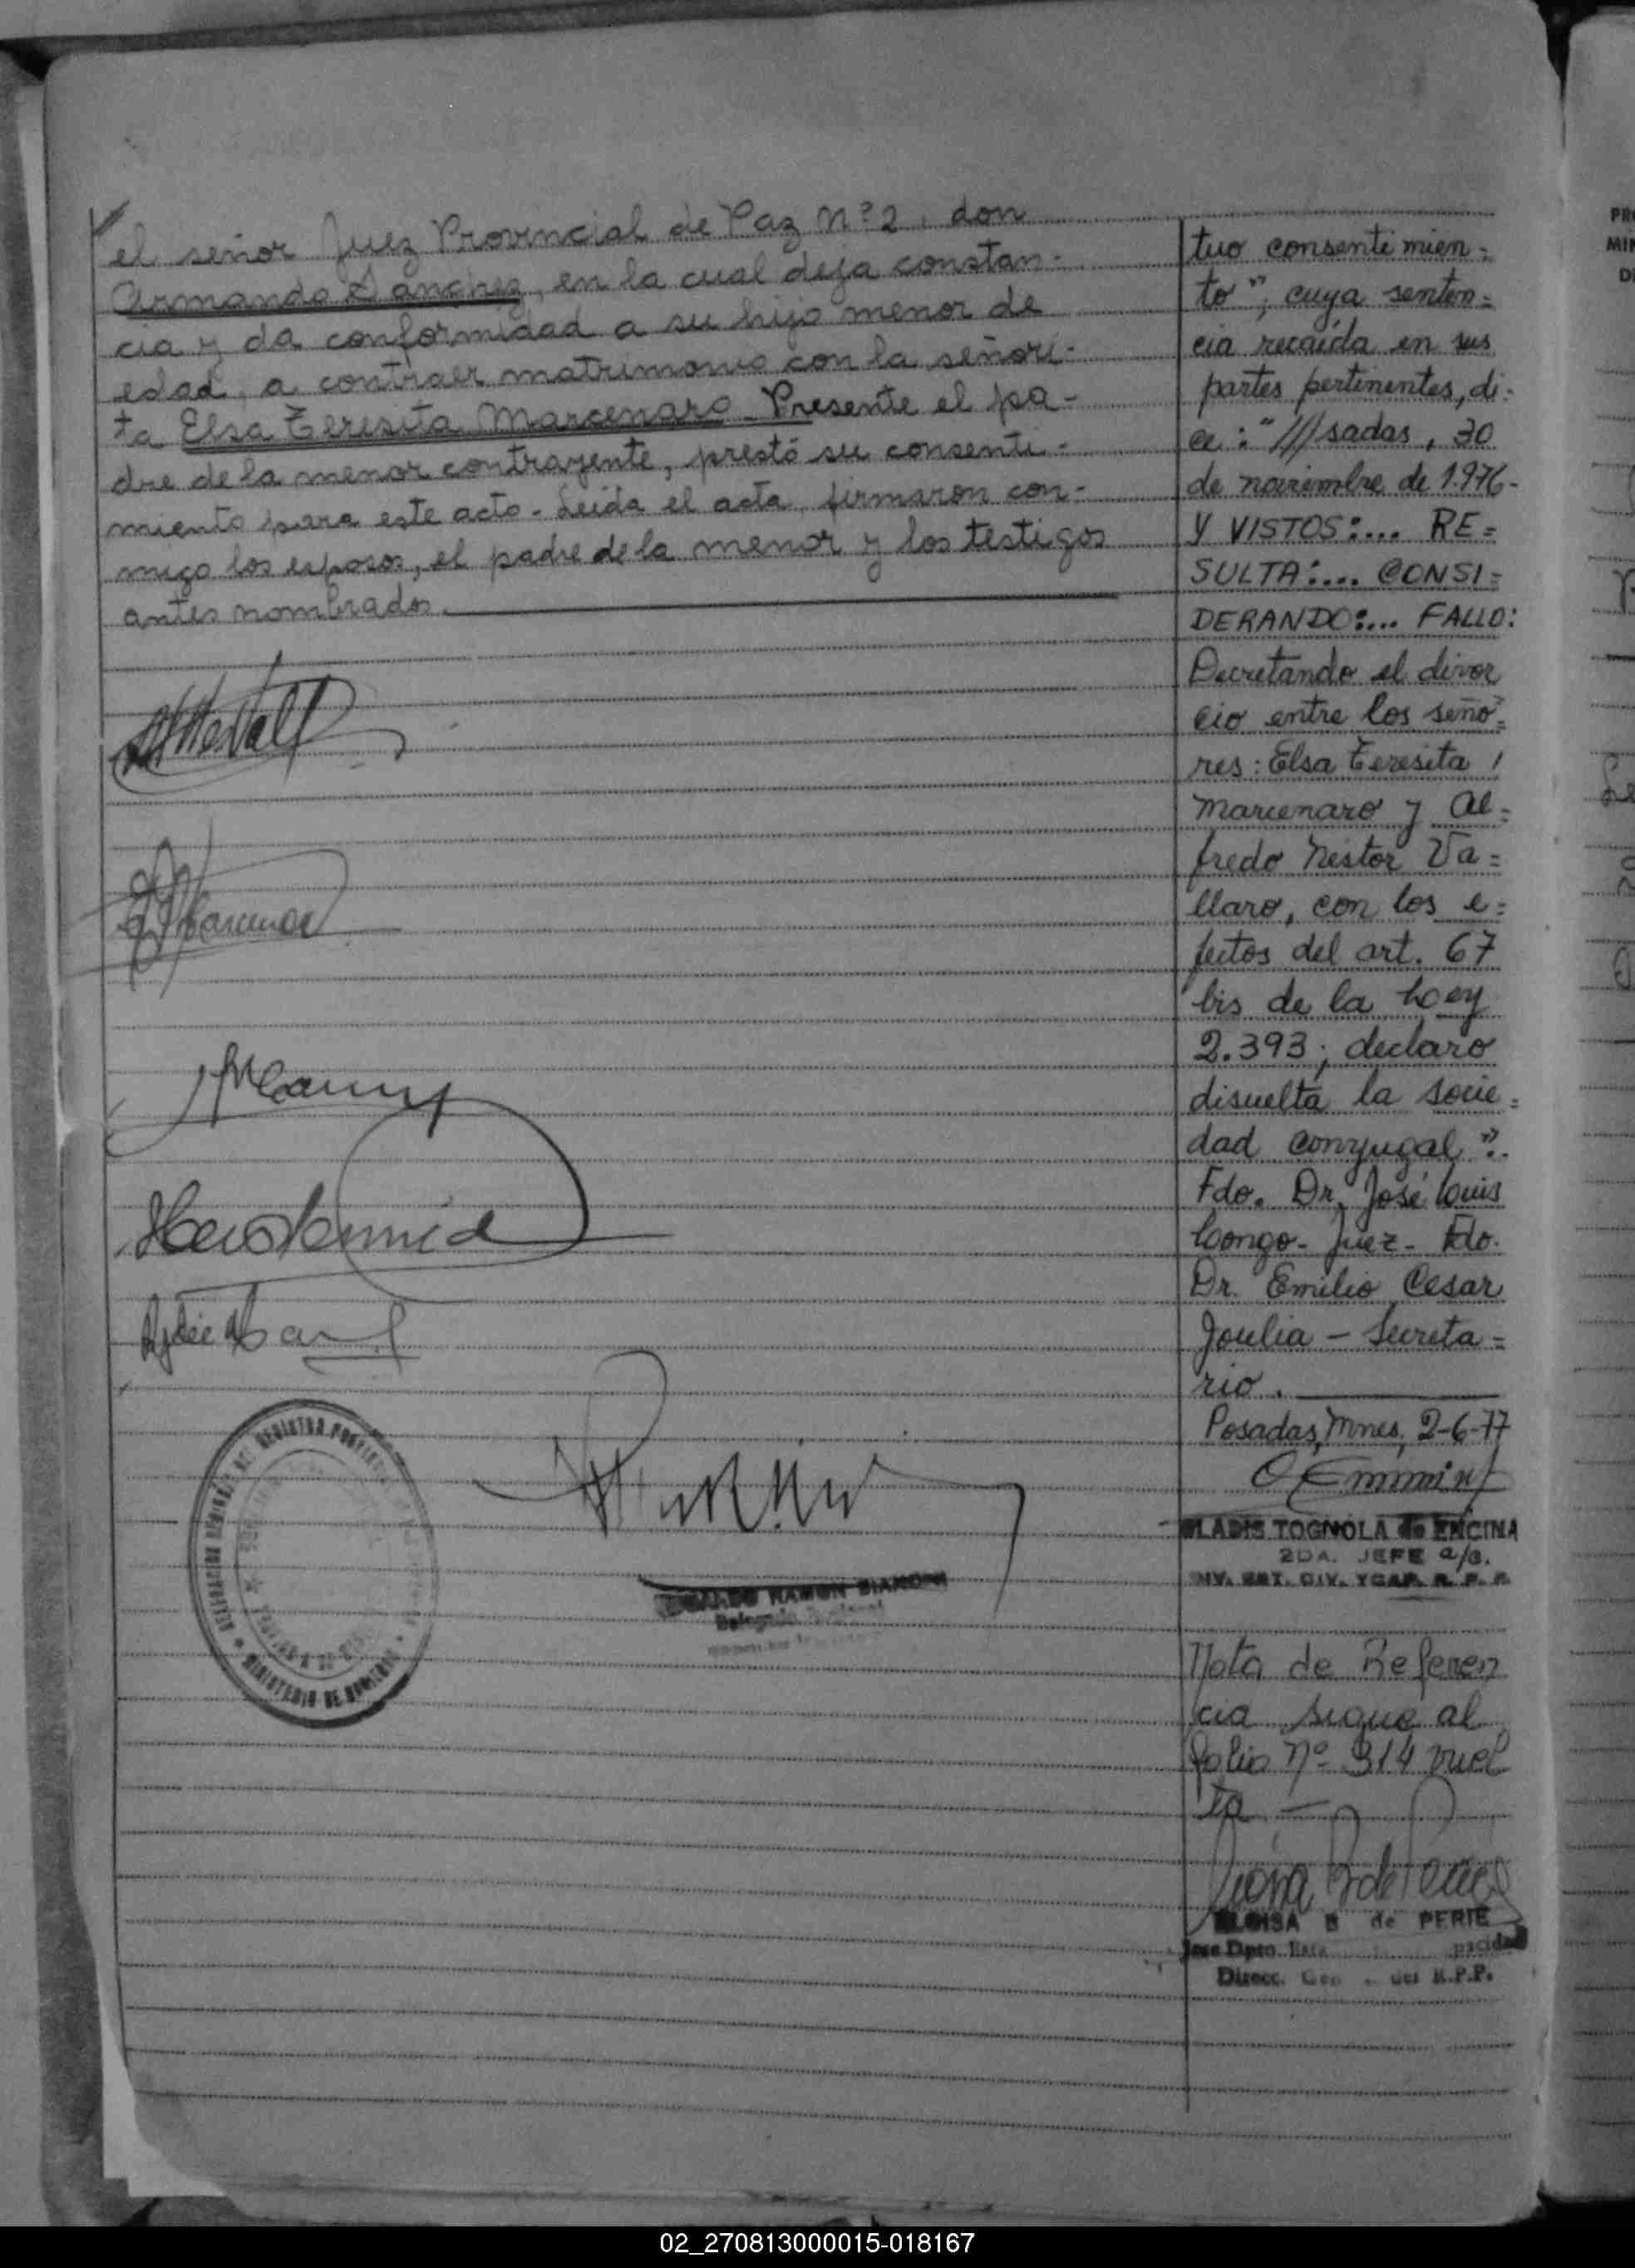 el señor Juez Provincial de Paz Nº 2, don
Armando Sanchez, en la cual deja constan-
cia y da conformidad a su hijo menor de
edad, a contraer matrimonio con la señori-
ta Elsa Teresita Marcenaro - Presente el pa-
dre de la menor contrayente, prestó su consenti-
miento para este acto - Leída el acta, firmaron con-
migo los esposos, el padre de la menor y los testigos
antes nombrados.
MINISTERIO DE
RAMON
tuo consentimien=
to", cuya senten=
cia recaída en sus
partes pertinentes, di-
ce: "///sadas, 30
de noviembre de 1.976-
Y VISTOS:... RE=
SULTA:... CONSI=
DERANDO:... FALLO:
Decretando el divor
cio entre los seño=
res: Elsa Teresita
Marcenaro y Al=
fredo Nestor Va=
llaro, con los e=
fectos del art. 67
bis de la Ley
2.393; declaro
disuelta la socie=
dad conyugal".
Fdo. Dr. José Luis
Longo - Juez - Fdo.
Dr. Emilio Cesar
Joulia - Secreta=
rio.
Posadas, Mnes, 2-6-77
GLADIS TOGNOLA de ENCINA
2DA. JEFE a/c.
INV. EST. CIV. Y CAP. R. P. P.
Nota de Referen
cia sigue al
folio Nº 314 vuel
ta -
ELOISA B de PERIE
Direcc. Gen. del R.P.P.
PR
MIN
D
02_270813000015-018167